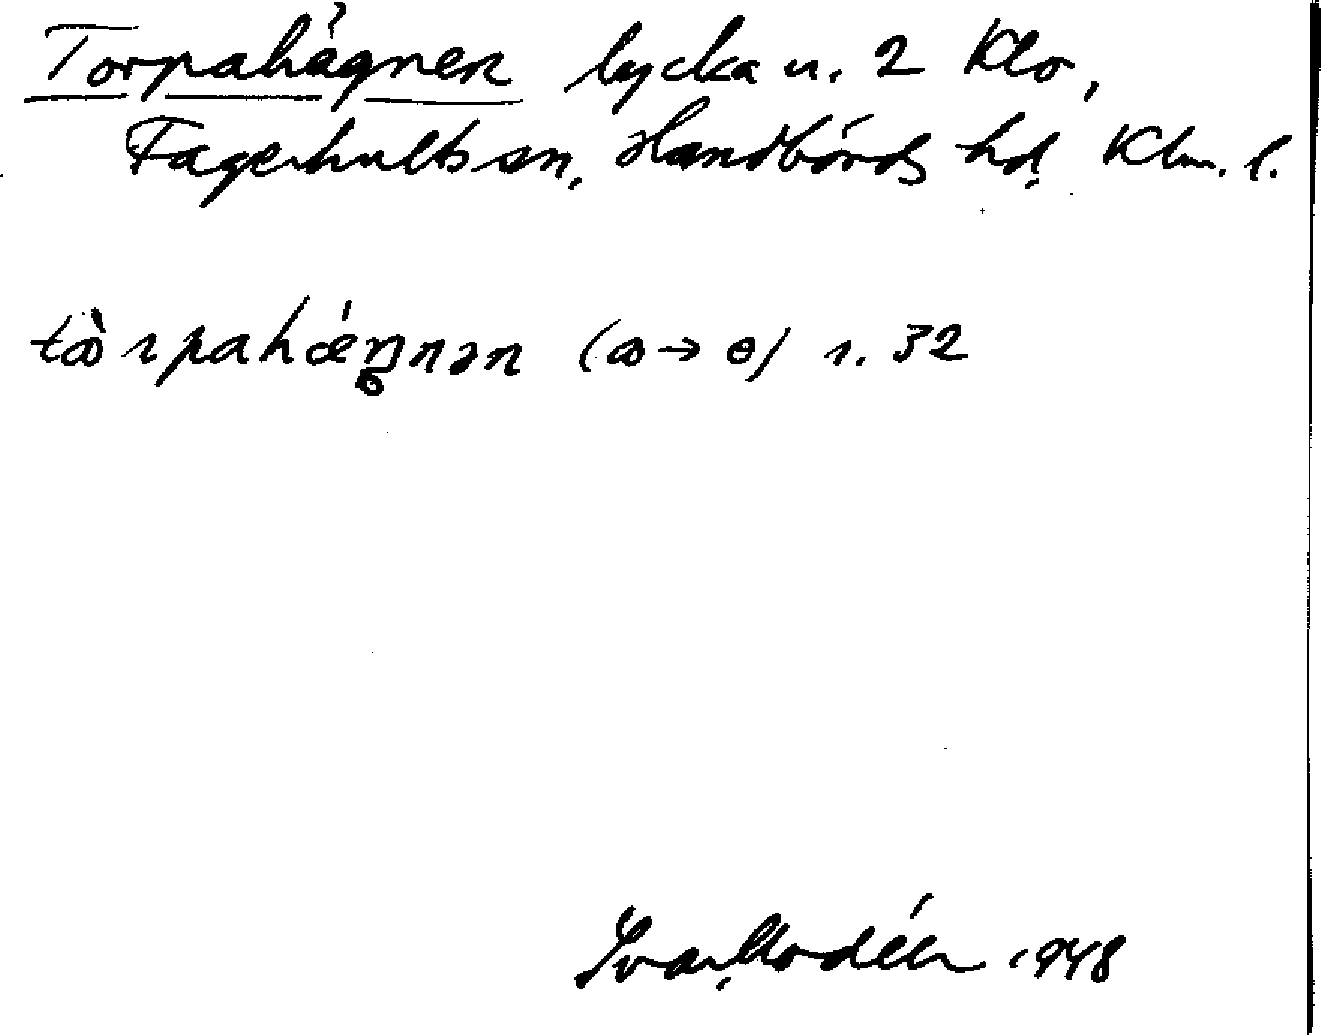 Torpahägnen lycka u. 2 Klo,
Fagerhults sn, Handbörds hd, Klm. l.
tɷ̀rpahǽŋnən (ɷ→ɵ) s. 32
Ivar Modéer 1948